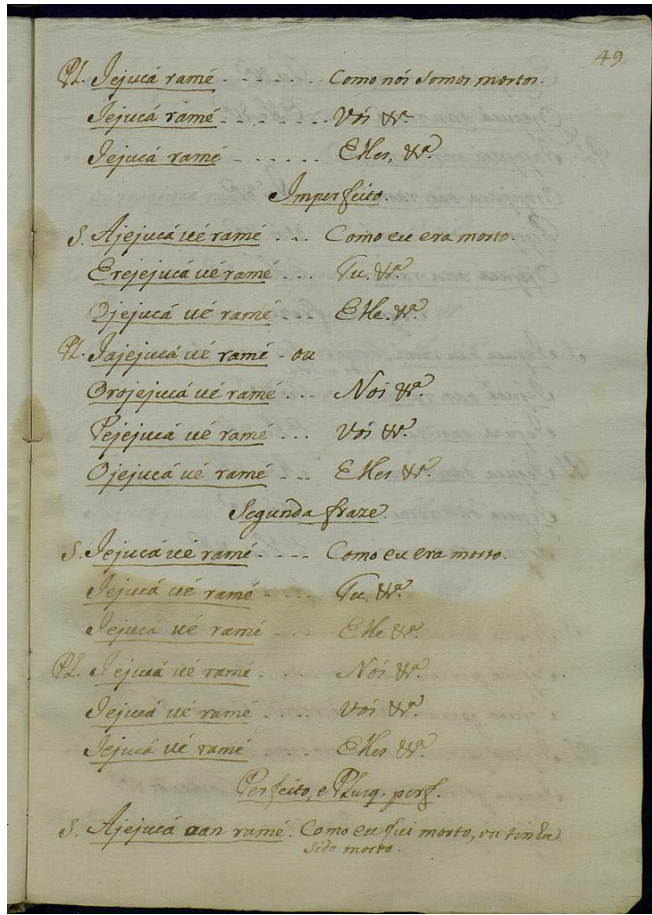 49
Pl. Jejucá ramé - - - - - - Como nós somos mortos.
Jejucá ramé - - - - - - - Vós &ᵃ.
Jejucá ramé - - - - - - Elles, &ᵃ.
Imperfeito.
S. Ajejucá ué ramé - - - Como eu era morto.
Erejejucá ué ramé - - - Tu, &ᵃ.
Ojejucá ué ramé - - - Elle. &ᵃ.
Pl. Jajejucá ué ramé - ou
Orojejucá ué ramé - - - Nós &ᵃ.
Pejejucá ué ramé - - - Vós &ᵃ.
Ojejucá ué ramé - - - Elles &ᵃ.
Segunda fraze.
S. Jejucá ué ramé - - - - Como eu era morto.
Jejucá ué ramé - - - - Tu, &ᵃ.
Jejucá ué ramé - - - - Elle &ᵃ.
Pl. Jejucá ué ramé - - - - Nós &ᵃ.
Jejucá ué ramé - - - - Vós &ᵃ.
Jejucá ué ramé - - - - Elles &ᵃ.
Perfeito, e Plusq. perf.
S. Ajejucá oan ramé. Como eu fui morto, ou tinha
sido morto.